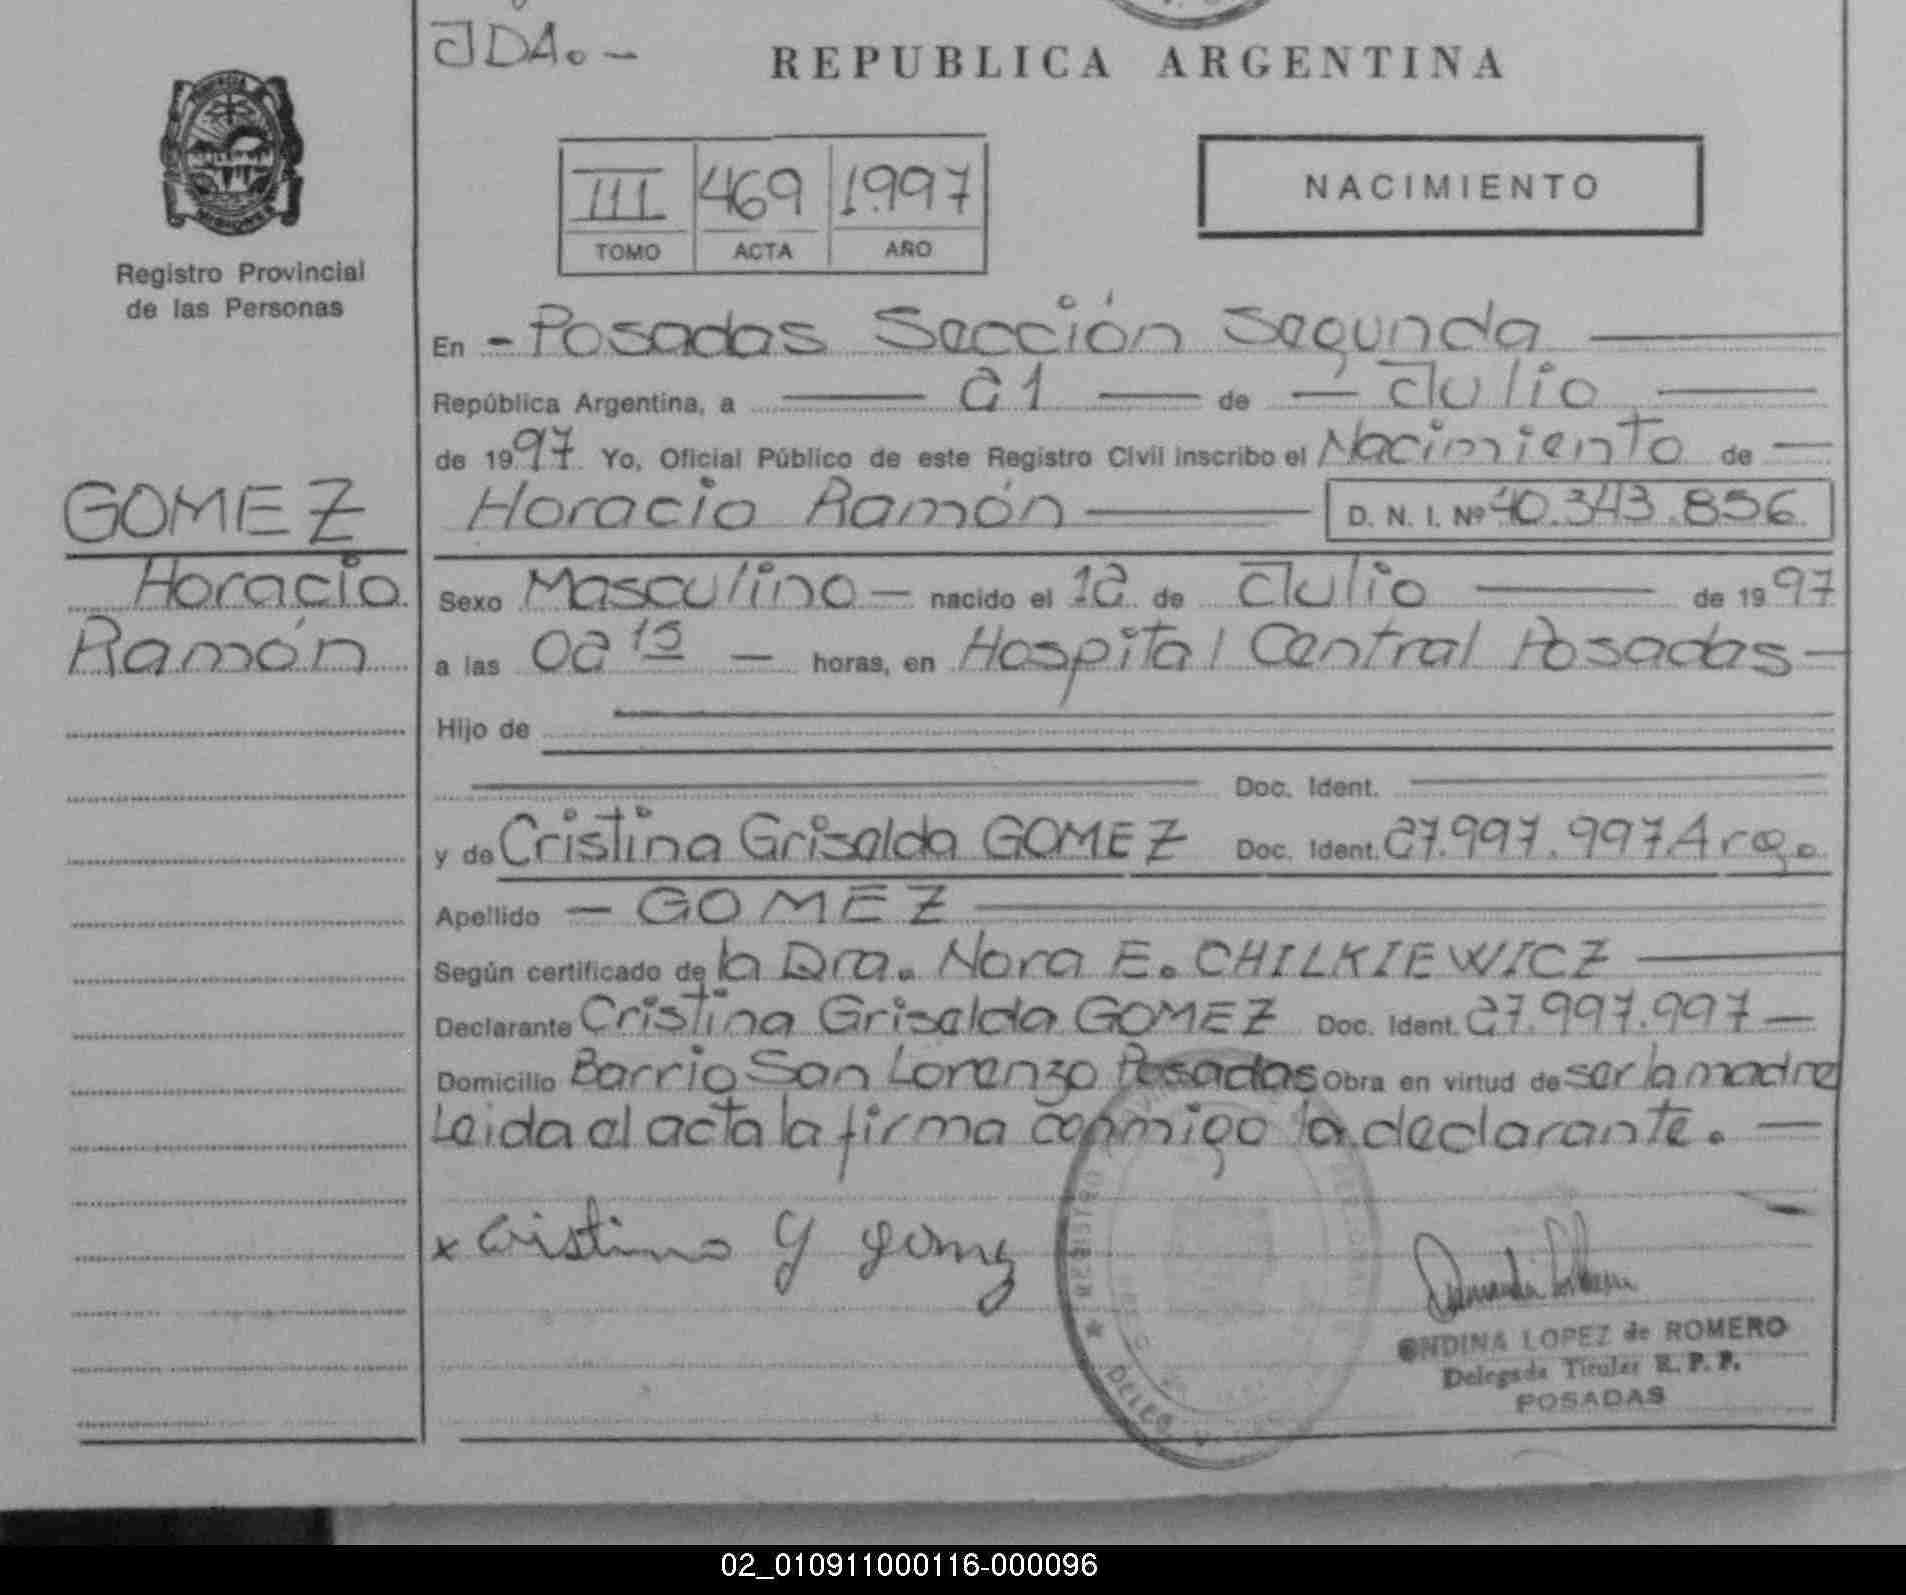 JDA.-
REPUBLICA ARGENTINA
III 469 1.997
TOMO ACTA AÑO
NACIMIENTO
Registro Provincial
de las Personas
GOMEZ
Horacio
Ramón
En - Posadas Sección Segunda
República Argentina, a 21 de Julio
de 1997 Yo, Oficial Público de este Registro Civil inscribo el Nacimiento de
Horacio Ramón D. N. I. Nº 40.343.856
Sexo Masculino nacido el 12 de Julio de 1997
a las 02 15 horas, en Hospital Central Posadas
Hijo de
Doc. Ident.
y de Cristina Griselda GOMEZ Doc. Ident. 27.997.997 Arg.
Apellido GOMEZ
Según certificado de la Dra. Nora E. CHILKIEWICZ
Declarante Cristina Griselda GOMEZ Doc. Ident. 27.997.997
Domicilio Barrio San Lorenzo Posadas Obra en virtud de ser la madre
Leida el acta la firma conmigo la declarante.
x Cristina G gomez
REGISTRO
DELEG
ONDINA LOPEZ de ROMERO
Delegada Titular R. P. P.
POSADAS
02_010911000116-000096